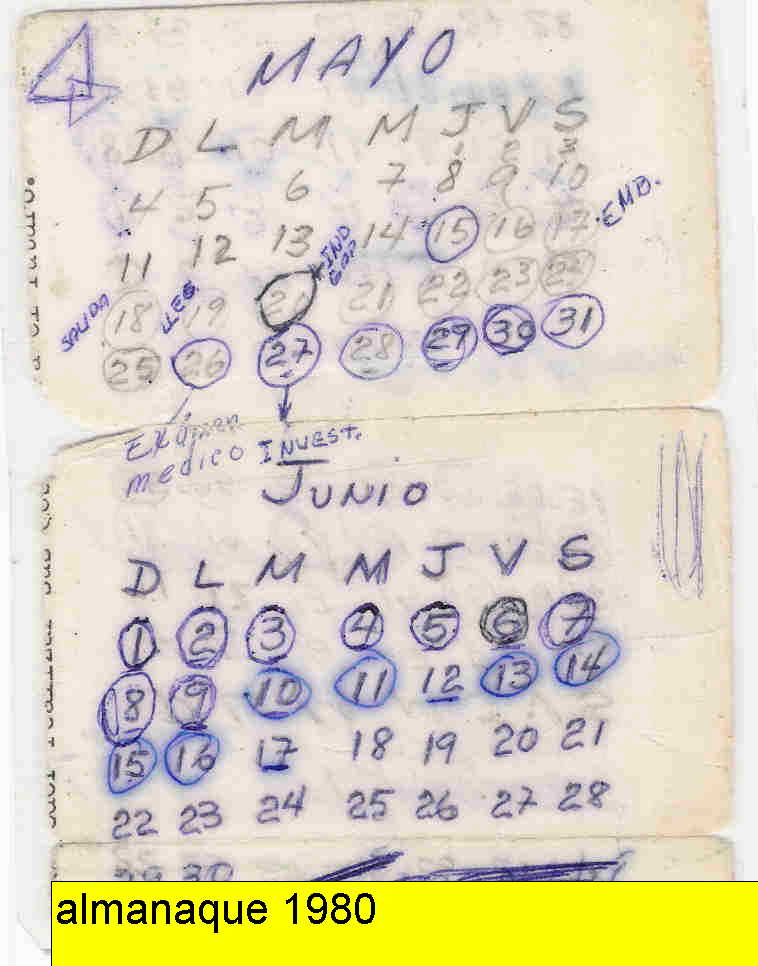 MAYO
D L M M J V S
1 2 3
4 5 6 7 8 9 10
11 12 13 14 15 16 17 EMB.
IND
SALIDA 18 LLEG 19 21 22 23
25 26 27 28 29 30 31
Exámen
medico INVEST.
JUNIO
D L M M J V S
1 2 3 4 5 6 7
8 9 10 11 12 13 14
15 16 17 18 19 20 21
22 23 24 25 26 27 28
29 30
almanaque 1980